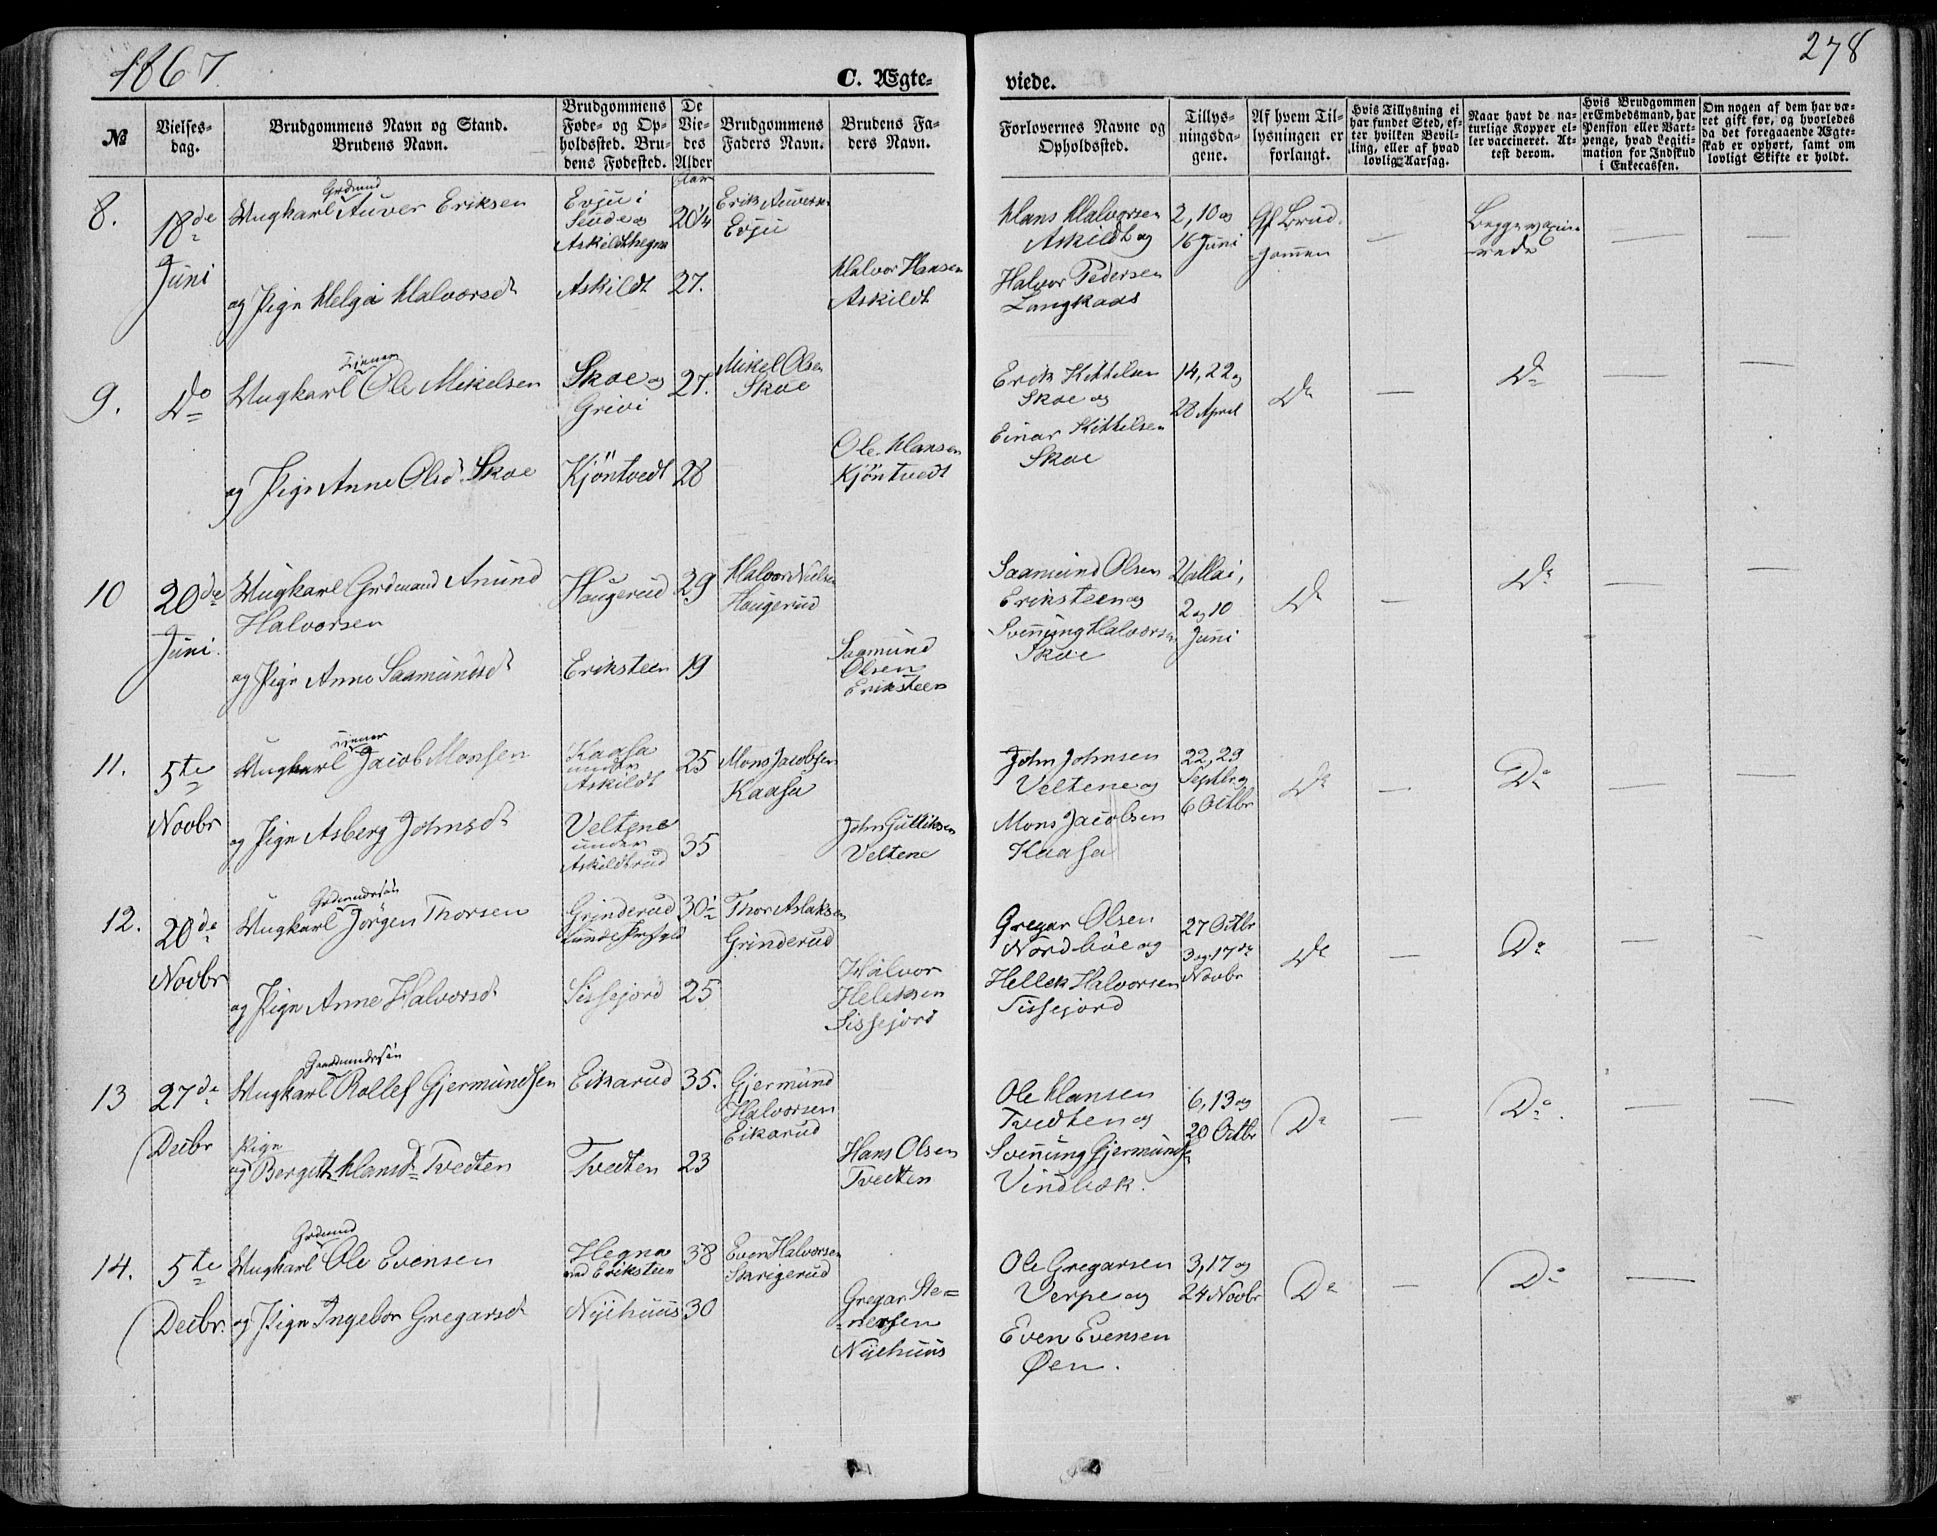 1867.
278
C. Ægte-
viede.
No
Vielses-
dag.
Brudgommens Navn og Stand.
Brudens Navn.
Brudgommens
Føde- og Op-
holdssted. Bru-
dens Fødested.
De
Vie-
des
Alder
Aar
Brudgommens
Faders Navn.
Brudens Fa-
ders Navn.
Forlovernes Navne og
Opholdssted.
Tillys-
ningsda-
gene.
Af hvem Til-
lysningen er
forlangt.
Hvis Tillysning ei
har fundet Sted, ef-
ter hvilken Bevil-
ling, eller af hvad
lovlig Aarsag.
Naar havt de na-
turlige Kopper el-
ler vaccineret. At-
test derom.
Hvis Brudgommen
er Embedsmand, har
Pension eller Vart-
penge, hvad Legiti-
mation for Indskud
i Enkecassen.
Om nogen af dem har væ-
ret gift før, og hvorledes
da det foregaaende Ægte-
skab er ophørt, samt om
lovligt Skifte er holdt.
8.
18de
Juni
Grdmnd
Ungkarl Auver Eriksen
og Pige Helga Halvorsdt
Evju i
Seude og
Askildthegna
Askildt
20 1/4
27.
Erik Auversen
Evju
Halvor Hansen
Askildt
Hans Halvorsen
Askildt og
Halvor Pedersen
Langkaas
2, 10 og
16 Juni
Af Brud-
gommen
Begge vaxine-
rede
9.
Do
Tjener
Ungkarl Ole Mikelsen
og Pige Anne Olsd. Skoe
Skoe og
Grivi
Kjöntvedt
27.
28
Mikel Olsen
Skoe
Ole Hansen
Kjöntvedt
Erik Kittilsen
Skoe og
Einar Kittilsen
Skoe
14, 22 og
28 April
Do
Do
10
20de
Juni.
Ungkarl Grdmand Anund
Halvorsen
og Pige Anne Saamundsdt
Haugerud
Eriksteen
29
19
Halvor Nielsen
Haugerud
Saamund
Olsen
Eriksteen
Saamund Olsen
Eriksteen og
Svenung Halvorsen
Skoe
Mai,
2 og 10
Juni
Do
Do
11.
5te
Novbr
Tjener
Ungkarl Jacob Monsen
og Pige Asberg Johnsdt
Kaasa
under
Askildt
Veltene
under
Askildtrud
25
35
Mons Jacobsen
Kaasa
John Gulliksen
Veltene
John Johnsen
Veltene og
Mons Jacobsen
Kaasa
22, 29
Septbr og
6 Octbr
Do
Do
12.
20de
Novbr
Grdmandssön
Ungkarl Jörgen Thorsen
og Pige Anne Halvorsdt
Grinderud
Lunde Prstgld
Sissejord
30 1/2
25
Thor Aslaksen
Grinderud
Halvor
Heleksen
Sissejord
Gregar Olsen
Nordböe og
Hellek Halvorsen
Sissejord
27 Octbr
3 og 17de
Novbr
Do
Do
13
27de
Decbr
Gaardmandssön
Ungkarl Rollef Gjermundsen
Pige
og Bergitt Hansdt Tvedten
Eikarud
Tvedten
35.
23
Gjermund
Halvorsen
Eikarud
Hans Olsen
Tvedten
Ole Hansen
Tvedten og
Svenung Gjermunds
Vindbæk.
6, 13 og
20 Octbr
Do
Do.
14.
5te
Decbr.
Grdmnd
Ungkarl Ole Evensen
og Pige Ingebor Gregarsdt
Hegna
ved Eriksteen
Nyehuus
38
30
Even Halvorsen
Skrigerud
Gregar Ste-
nersen
Nyehuus
Ole Gregarsen
Verpe og
Even Evensen
Øen.
3, 17 og
24 Novbr
Do
Do